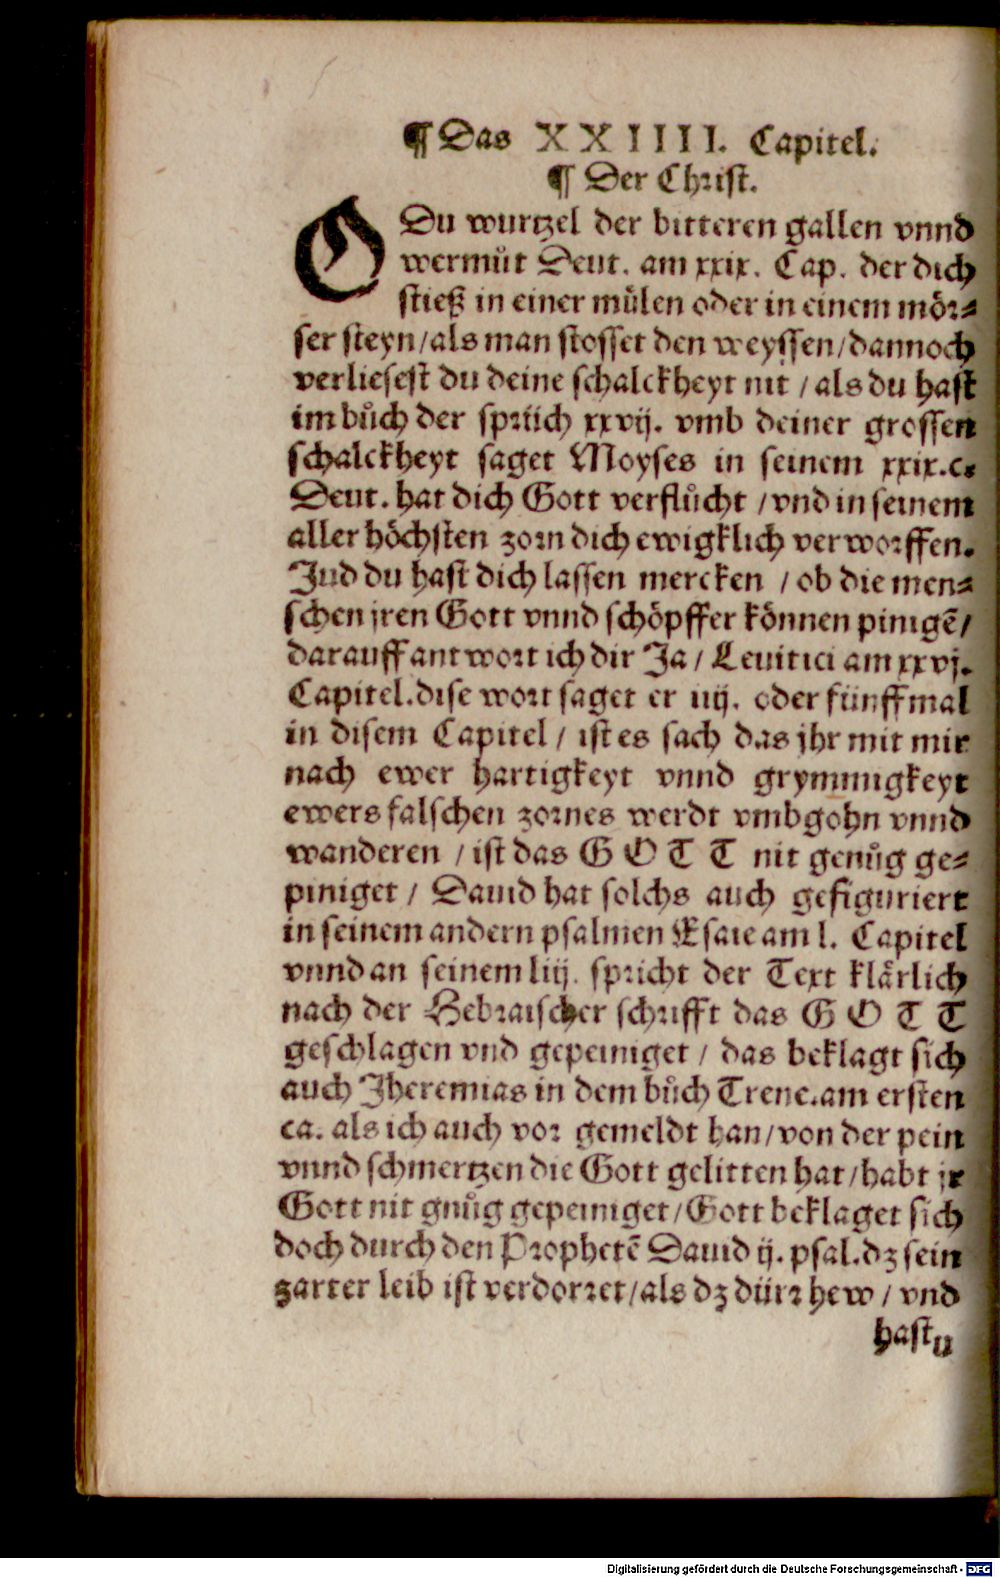 ¶ Das XXIIII. Capitel.
¶ Der Christ.
O Du wurtzel der bitteren gallen vnnd
wermůt Deut. am xxix. Cap. der dich
stieß in einer můlen oder in einem mör⸗
ser steyn/als man stosset den weyssen/dannoch
verliesest du deine schalckheyt nit / als du hast
im bůch der sprüch xxvij. vmb deiner grossen
schalckheyt saget Moyses in seinem xxix.c.
Deut. hat dich Gott verflůcht / vnd in seinem
aller höchsten zorn dich ewigklich verworffen.
Jud du hast dich lassen mercken / ob die men⸗
schen jren Gott vnnd schöpffer können pinigẽ/
darauff antwort ich dir Ja / Leuitici am xxvj.
Capitel.dise wort saget er iiij. oder fünffmal
in disem Capitel / ist es sach das jhr mit mir
nach ewer hartigkeyt vnnd grymmigkeyt
ewers falschen zornes werdt vmbgohn vnnd
wanderen / ist das G O T T nit genůg ge⸗
piniget / Dauid hat solchs auch gefiguriert
in seinem andern psalmen Esaie am l. Capitel
vnnd an seinem liij. spricht der Text klärlich
nach der Hebraischer schrifft das G O T T
geschlagen vnd gepeiniget / das beklagt sich
auch Jheremias in dem bůch Trene.am ersten
ca. als ich auch vor gemeldt han/von der pein
vnnd schmertzen die Gott gelitten hat/habt jr
Gott nit gnůg gepeiniget/Gott beklaget sich
doch durch den Prophetẽ Dauid ij. psal.dz sein
zarter leib ist verdorret/als dz dürr hew / vnd
hastu
Digitalisierung gefördert durch die Deutsche Forschungsgemeinschaft - DFG